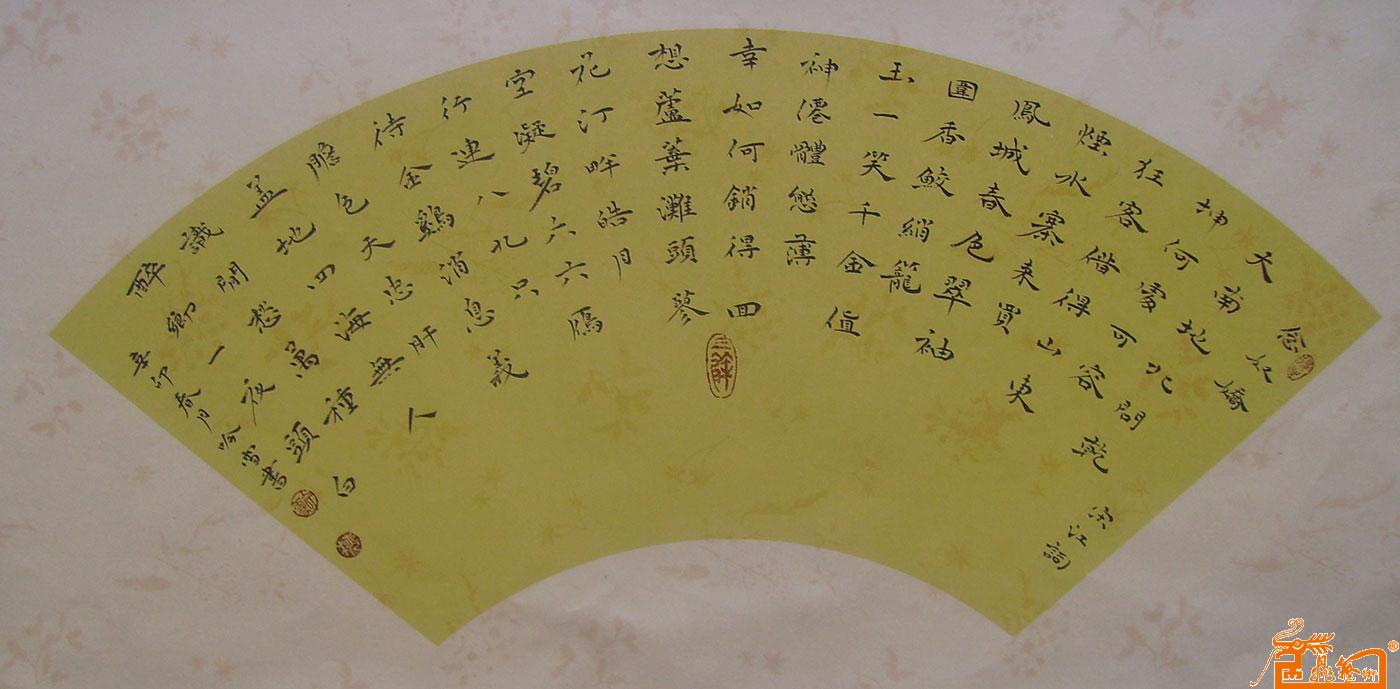 念奴嬌 宋江詞
天南地北問乾
坤何處可容
狂客借得山東
煙水寨來買
鳳城春色翠袖
圍香鮫綃籠
玉一笑千金值
神僊體態薄
幸如何銷得回
想蘆葉灘頭蓼
花汀畔皓月
空凝碧六六鴈
行連八九只
待金鷄消息義
膽包天忠肝
蓋地四海無人
識閒愁萬種
醉鄉一夜頭白
辛卯春月吟雪書